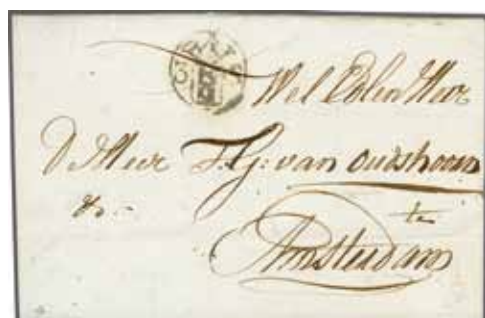 3
Wel Edelen Heer
De Heer F. G: van Oudshoorn
&c.-
te
Amsterdam